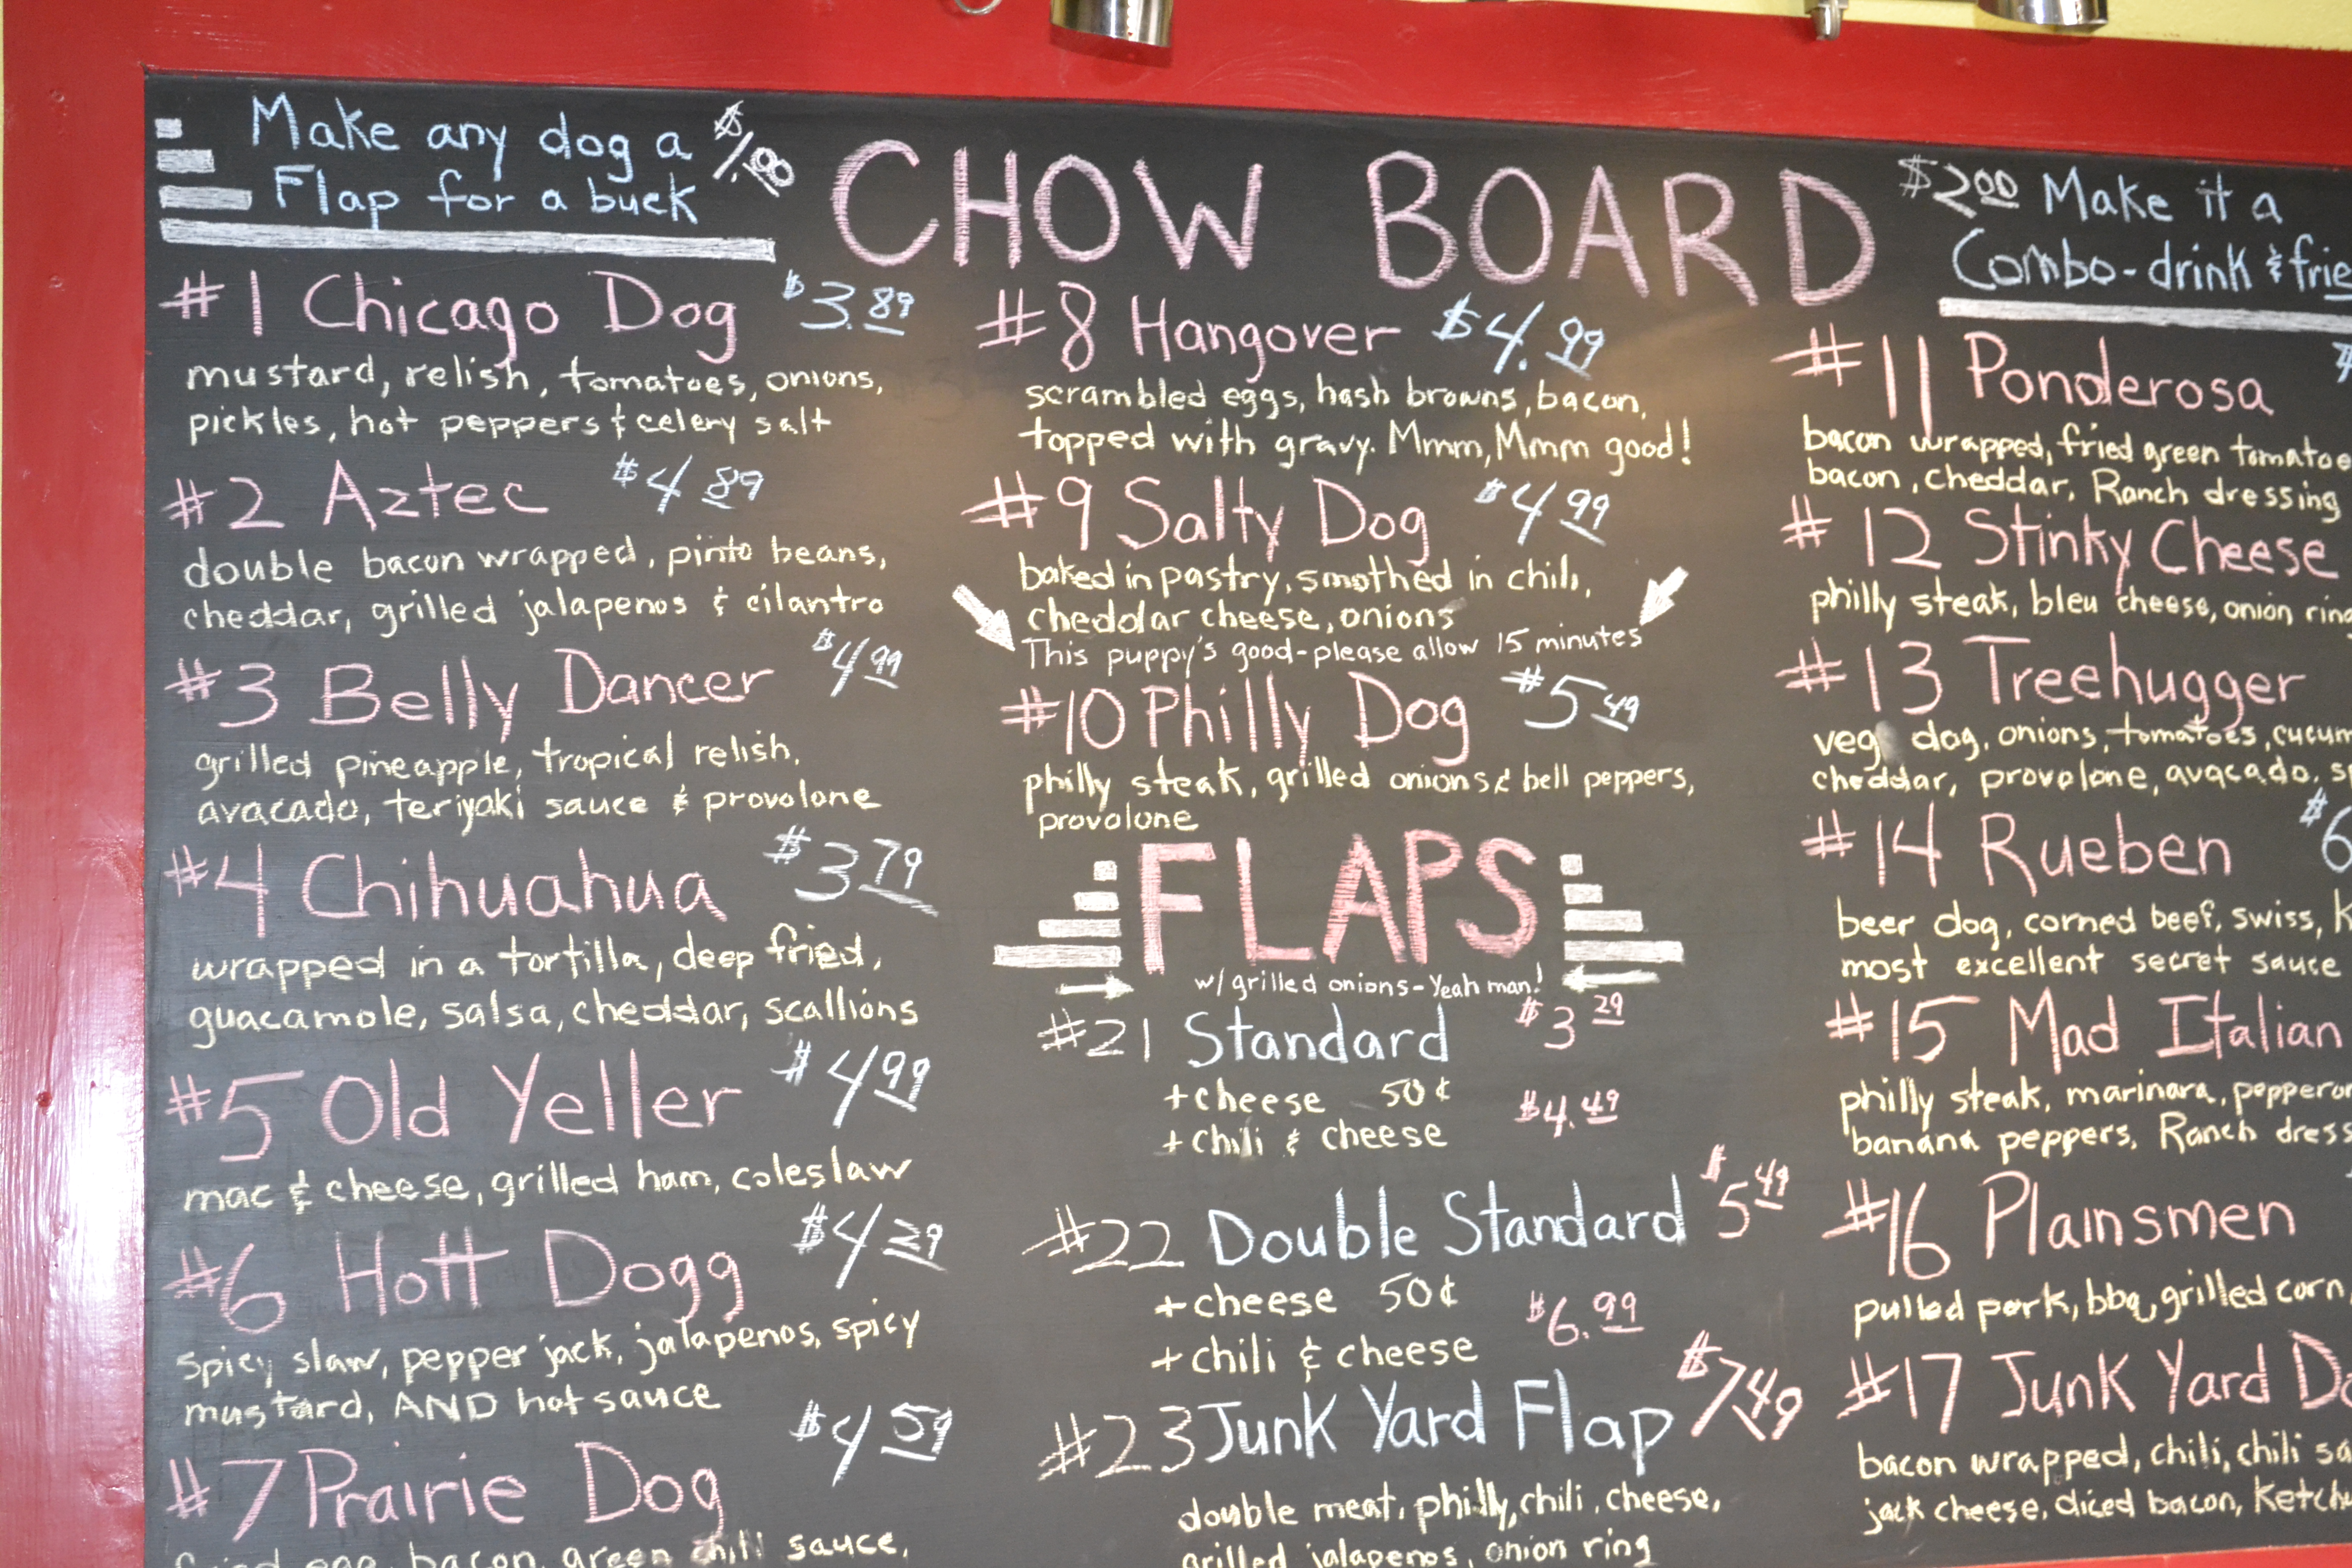 Make any dog a $1.00
Flap for a buck
CHOW BOARD
$2.00 Make it a
Combo-drink & frie
#1 Chicago Dog $3.89
mustard, relish, tomatoes, onions,
pickles, hot peppers & celery salt
#2 Aztec $4.89
double bacon wrapped, pinto beans,
cheddar, grilled jalapenos & cilantro
#3 Belly Dancer $4.99
grilled pineapple, tropical relish,
avacado, teriyaki sauce & provolone
#4 Chihuahua $3.79
wrapped in a tortilla, deep fried,
guacamole, salsa, cheddar, scallions
#5 Old Yeller $4.99
mac & cheese, grilled ham, coleslaw
#6 Hott Dogg $4.29
spicy slaw, pepper jack, jalapenos, spicy
mustard, AND hot sauce
#7 Prairie Dog $4.59
fried egg, bacon, green chili sauce,
#8 Hangover $4.99
scrambled eggs, hash browns, bacon,
topped with gravy. Mmm, Mmm good!
#9 Salty Dog $4.99
baked in pastry, smothed in chili,
cheddar cheese, onions
This puppy's good-please allow 15 minutes
#10 Philly Dog $5.49
philly steak, grilled onions & bell peppers,
provolone
FLAPS
w/ grilled onions-Yeah man!
#21 Standard $3.29
+cheese 50¢
+chili & cheese $4.49
#22 Double Standard $5.49
+cheese 50¢
+chili & cheese $6.99
#23 Junk Yard Flap $7.49
double meat, philly, chili, cheese,
grilled jalapenos, onion ring
#11 Ponderosa
bacon wrapped, fried green tomatoe
bacon, cheddar, Ranch dressing
#12 Stinky Cheese
philly steak, bleu cheese, onion rin
#13 Treehugger
veg dog, onions, tomatoes, cucum
cheddar, provolone, avacado, s
#14 Rueben $6
beer dog, corned beef, swiss, K
most excellent secret sauce
#15 Mad Italian
philly steak, marinara, peppero
banana peppers, Ranch dress
#16 Plainsmen
pulled pork, bbq, grilled corn,
#17 Junk Yard Do
bacon wrapped, chili, chili sa
jack cheese, diced bacon, Ketchu